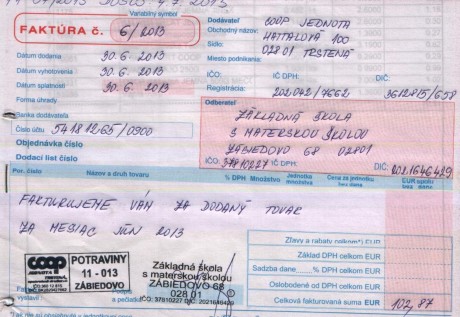 Variabilný symbol
FAKTÚRA č. 6/2013
Dodávateľ
Obchodný názov: COOP JEDNOTA
Sídlo: HATTALOVA 100
028 01 TRSTENÁ
Miesto podnikania:
Dátum dodania 30.6.2013
Dátum vyhotovenia 30.6.2013
Dátum splatnosti 30.6.2013
Forma úhrady
IČO: IČ DPH: DIČ:
Registrácia:
Banka dodávateľa
Číslo účtu 5418 12 65/0900
Objednávka číslo
Dodací list číslo
Odberateľ
ZÁKLADNÁ ŠKOLA
S MATERSKOU ŠKOLOU
ZÁBIEDOVO 68 02801
IČO: 37810227 IČ DPH: DIČ: 2021646429
Por. číslo Názov a druh tovaru % DPH Množstvo Jednotka množstva Cena za jednotku bez dane
FAKTURUJEME VÁM ZA DODANÝ TOVAR
ZA MESIAC JÚN 2013
coop JEDNOTA
POTRAVINY
11 - 013
ZÁBIEDOVO
Základná škola
s materskou školou
ZÁBIEDOVO 68
028 01
IČO: 37810227 DIČ: 2021646429
Zľavy a rabaty celkom EUR
Základ DPH celkom EUR
Sadzba dane % DPH celkom EUR
Oslobodené od DPH celkom EUR
Celková fakturovaná suma EUR 102,87